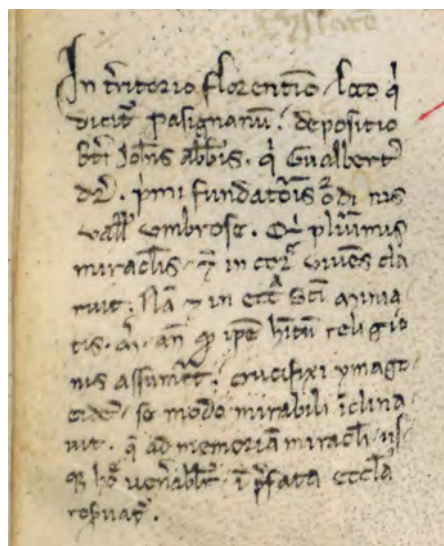 In t̄ritorio florentīo / loco q̄
dicit᷑ pasignanū. depositio
bt̄i Joh̄is abb̄is. q̄ Gualbert᷒
dr̄. p̄mi fundatōis ordi nis
vall̄ umbrose. Qui plurimis
miracl̄is. ⁊ in vivens cla
ruit. Nā ⁊ in ecc̄a sc̄i minia
tis. an̄ q̄ ip̄e h̄itū religio
nis assum̄et. crucifixi ymago
eidē / se modo mirabili īclina
vit. q̄ ad memoriā miracl̄i us
q̄ ho᷑ ven̄abl̄r. ī p̄fata eccl̄a
res̄vat᷑.